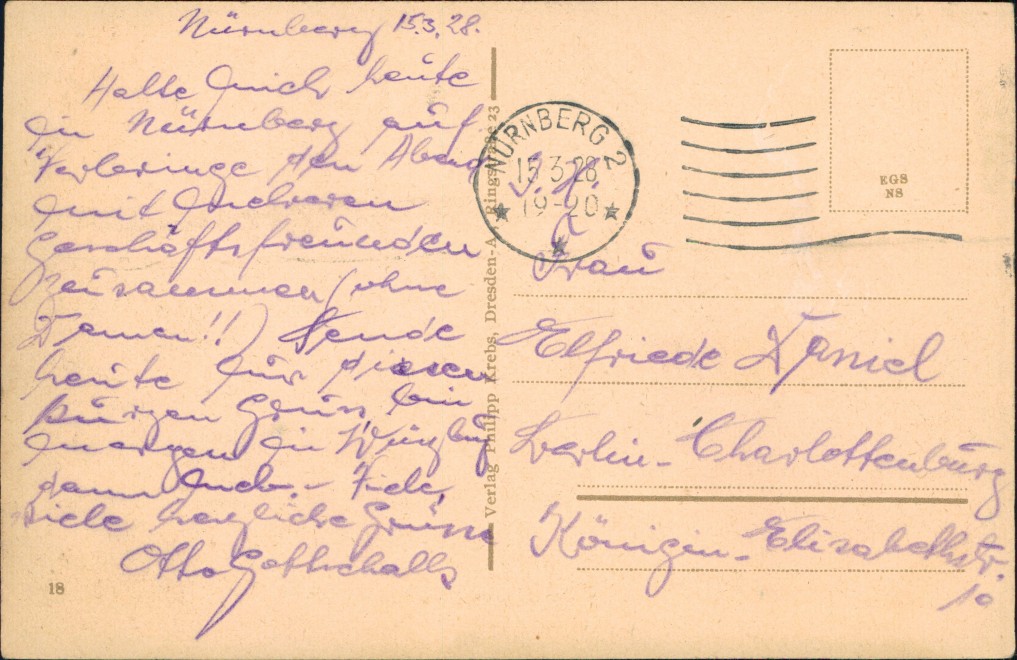 Nürnberg 15.3.28.
Halte mich heute
in Nürnberg auf.
Verbringe den Abend
mit mehreren
Geschäftsfreunden
zusammen (ohne
Damen!!) Sende
heute nur diesen
kurzen Gruss, bin
morgen in Würzburg
dann mehr. – Viele,
viele herzliche Grüsse
Otto Gottschalk
18
Verlag Philipp Krebs, Dresden-A., Ringstraße 23
NÜRNBERG 2
15.3.28
19-20
EGS
NS
Frau
Elfriede Daniel
Berlin-Charlottenburg
Königin-Elisabethstr.
10